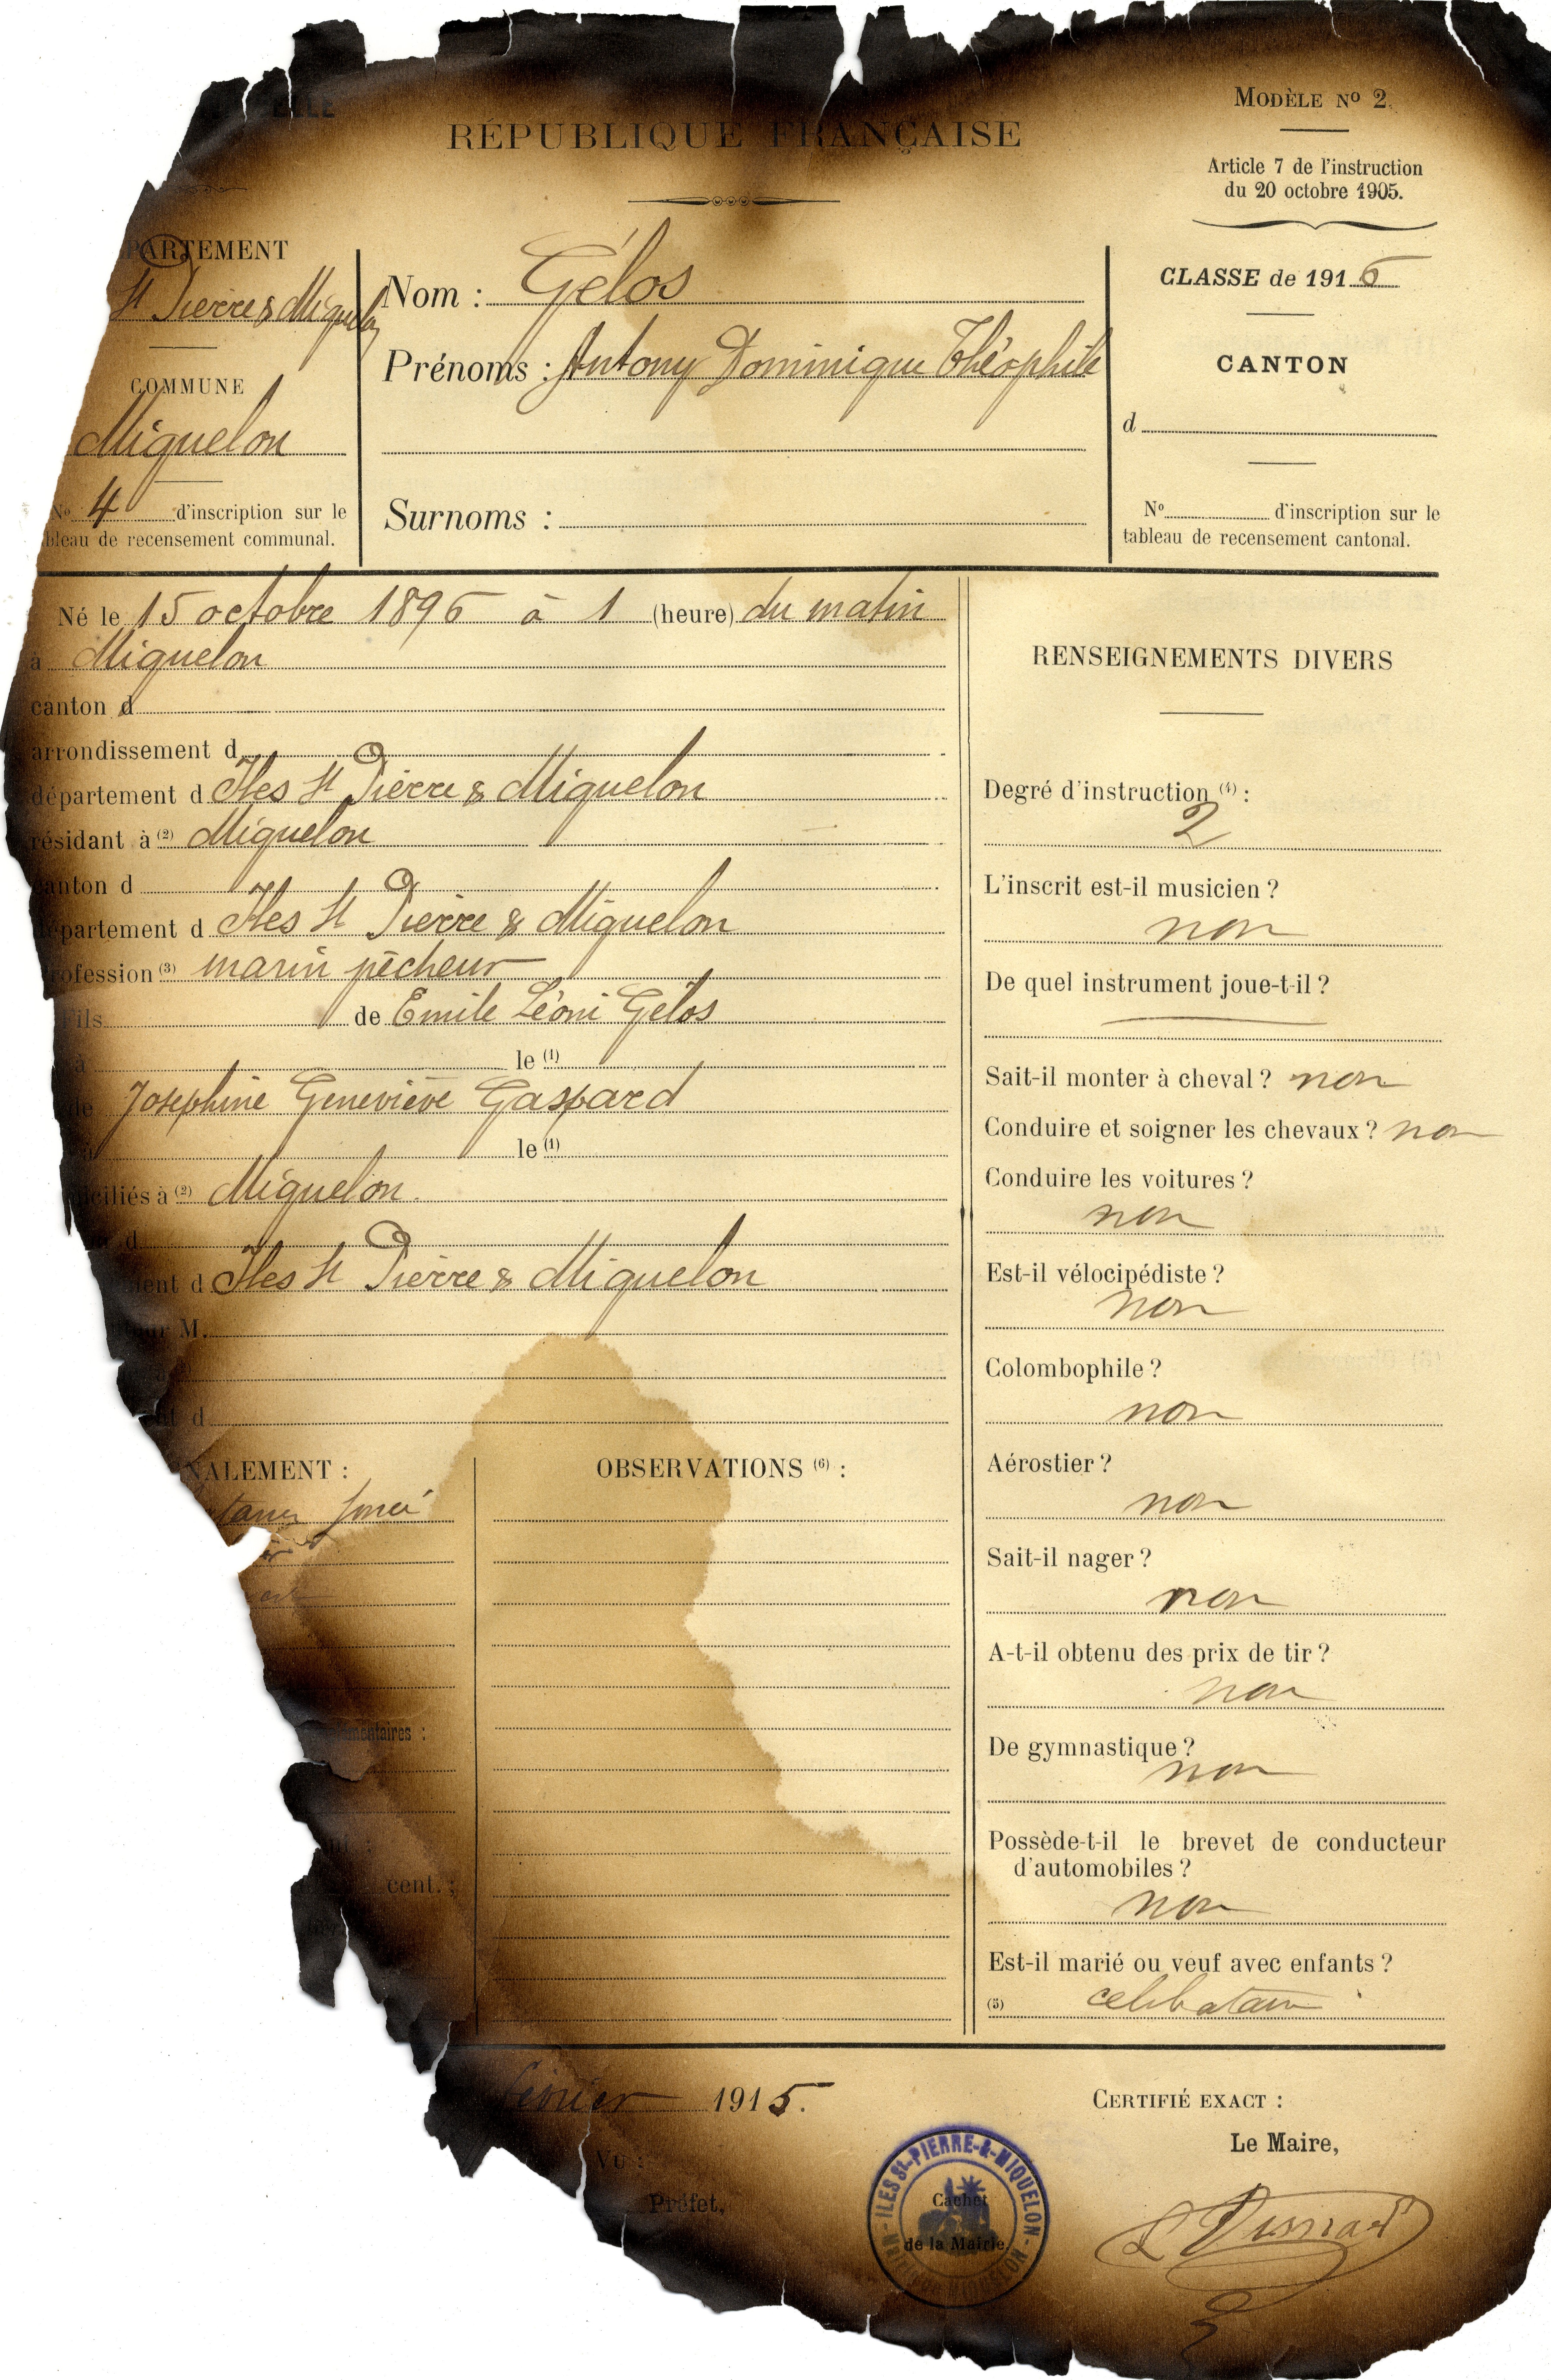 RÉPUBLIQUE FRANÇAISE
MODÈLE Nº 2.
Article 7 de l'instruction
du 20 octobre 1905.
PARTEMENT
St Pierre & Miquelon
COMMUNE
Miquelon
Nº 4 d'inscription sur le
bleau de recensement communal.
Nom : Gélos
Prénoms : Antony Dominique Théophile
Surnoms :
CLASSE de 1916
CANTON
d
Nº d'inscription sur le
tableau de recensement cantonal.
Né le 15 octobre 1896 à 1 (heure) du matin
à Miquelon
canton d
arrondissement d
département d Iles St Pierre & Miquelon
résidant à (2) Miquelon
canton d
département d Iles St Pierre & Miquelon
profession (3) marin pêcheur
Fils de Emile Léoni Gélos
à le (1)
de Joséphine Geneviève Gaspard
le (1)
iciliés à (2) Miquelon.
d
ent d Iles St Pierre & Miquelon
ur M.
ent d
NALEMENT :
foncé
mentaires :
cent. :
OBSERVATIONS (6) :
RENSEIGNEMENTS DIVERS
Degré d'instruction (4) :
2
L'inscrit est-il musicien ?
non
De quel instrument joue-t-il ?
Sait-il monter à cheval ? non
Conduire et soigner les chevaux ? non
Conduire les voitures ?
non
Est-il vélocipédiste ?
non
Colombophile ?
non
Aérostier ?
non
Sait-il nager ?
non
A-t-il obtenu des prix de tir ?
non
De gymnastique ?
non
Possède-t-il le brevet de conducteur
d'automobiles ?
non
Est-il marié ou veuf avec enfants ?
(5) celibataire
février 1915.
Vu :
Préfet,
CERTIFIÉ EXACT :
Le Maire,
ILES St-PIERRE-&-MIQUELON
MAIRIE DE MIQUELON
Cachet
de la Mairie.